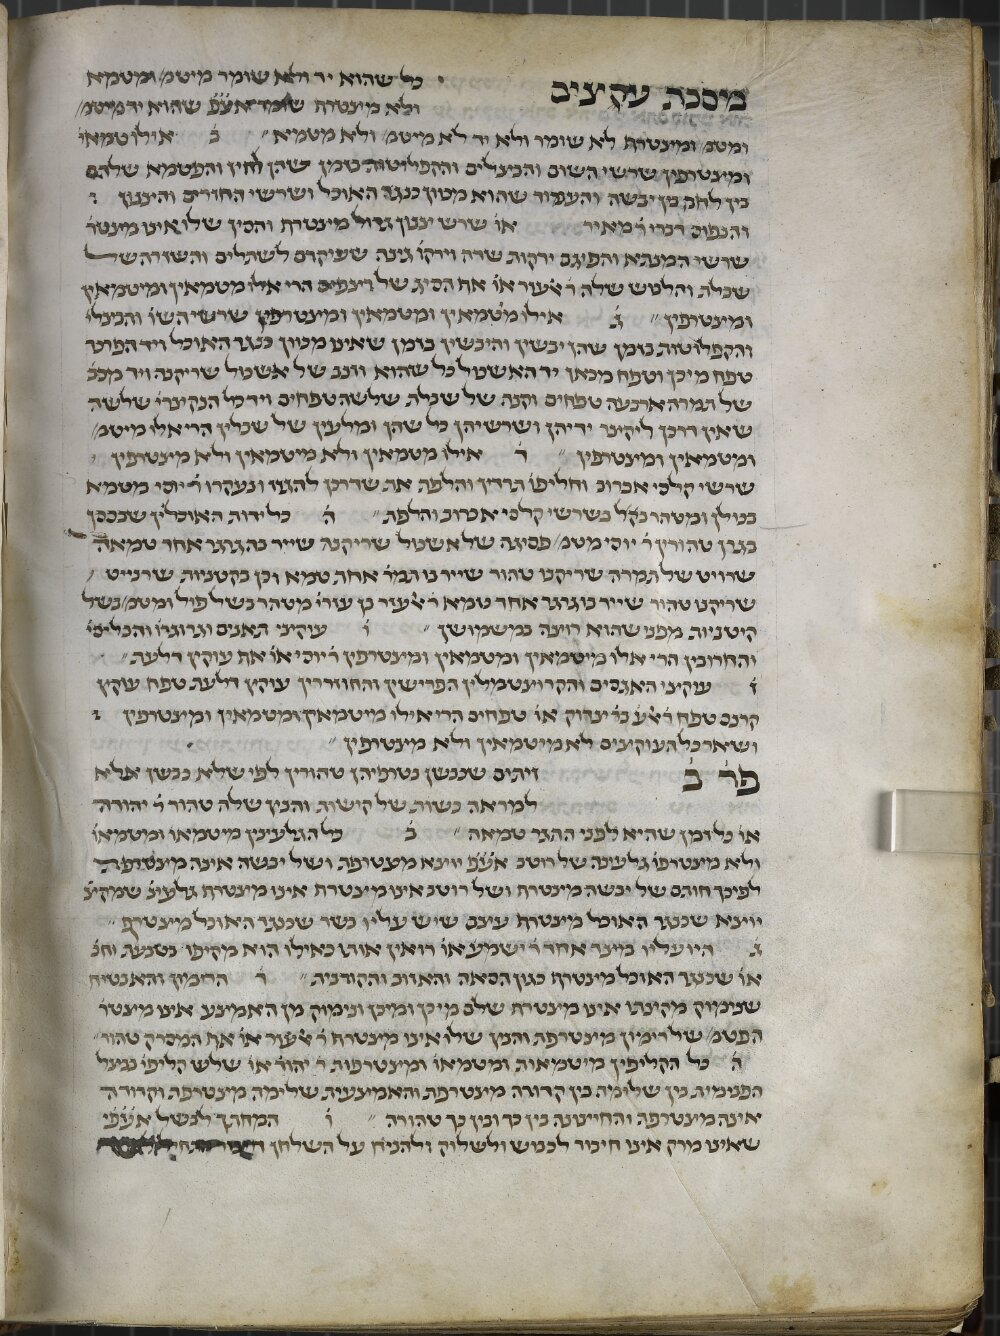 מסכת עקיצים כל שהוא יד ולא שומר מיטמ׳ ומטמא
ולא מיצטרף שומר אע״פ שהוא יד מיטמ׳
ומטמ׳ ומיצטרף לא שומר ולא יד לא מיטמ׳ ולא מטמא ב אילו מטמאי׳
ומיצטרפין שרשי השום והבצלים והקפלוטות בזמן שהן לחין והפטמא שלהם
בין לחה בין יבשה והעמוד שהוא מכוון כנגד האוכל ושרשי החזרים והצנון
והנפוס דברי ר׳ מאיר או׳ שרש צנון גדול מיצטרף והסיב שלו אינו מיצטר׳
שרשי המנתא והפיגם ירקות שדה וירקו׳ גינה שעיקרם לשתלים והשדרה של
שבלת והלבוש שלה ר׳ אלעזר או׳ אף הסיג של ריצפים הרי אילו מטמאין ומיטמאין
ומיצטרפין ג אילו מטמאין ומטמאין ומיצטרפין שרשי השו׳ והבצלי׳
והקפלוטות בזמן שהן יבשין והיבשין בזמן שאינו מכוון כנגד האוכל ויד הפרכי׳
טפח מיכן וטפח מכאן יד האשכול כל שהוא וזנב של אשכול שריקנה ויד מכב׳
של תמרה ארבעה טפחים וקנה של שבלת שלשה טפחים ויד כל הנקצרי׳ שלשה
שאין דרכן ליקצר ידיהן ושרשיהן כל שהן ומלעין של שבלין הרי אלו מיטמ׳
ומטמאין ומיצטרפין ד אילו מטמאין ולא מיטמאין ולא מיצטרפין
שרשי קלסי אכרוב וחליפו׳ תרדין והלפת את שדרכן להגזז ונעקרו ר׳ יוסי מטמא
בכולן ומטהר בכל בשרשי קלסי אכרוב והלפת ה כל ידות האוכלין שבססן
בגרן טהורין ר׳ יוסי מטמ׳ פסיגה של אשכול שריקנה שייר בה גרגר אחד טמאה
שרויט של תמרה שריקנו טהור שייר בו תמר׳ אחת טמא וכן בקטניות שרביט
שריקנו טהור שייר בו גרגר אחד טמא ר׳ אלעזר בן עזרי׳ מטהר בשל פול ומטמ׳ בשל
קיטניות מפני שהוא רוצה במשמושן ו עוקצי תאנים וגרוגרו׳ והכליסי׳
והחרובין הרי אלו מיטמאין ומטמאין ומיצטרפין ר׳ יוסי או׳ אף עוקץ דלעת
ז עוקצי האגסים והקרוצטמלין הפרישין והחוזררין עוקץ דלעת טפח עוקץ
קרנס טפח ר׳ אלע׳ בר׳ צדוק או׳ טפחים הרי אילו מיטמאין ומטמאין ומיצטרפין
ושאר כל העוקצים לא מיטמאין ולא מיצטרפין
פר׳ ב׳ זיתים שכבשן בטרפיהן טהורין לפי שלא כבשן אלא
למראה כשות של קישות והנץ שלה טהור ר׳ יהודה
או׳ כל זמן שהיא לפני התגר טמאה ב כל הגלעינין מיטמאו׳ ומטמאו׳
ולא מיצטרפו׳ גלעינה של רוטב אע״פ יוצא מצטרפת ושל יבשה אינה מיצטרפת
לפיכך חותם של יבשה מיצטרף ושל רוטב אינו מיצטרף אינו מיצטרף גלעינ׳ שמקצ׳
יוצא שכנגד האוכל מיצטרף עצם שיש עליו בשר שכנגד האוכל מיצטרף
ג היו עליו מיצד אחד ר׳ ישמע׳ או׳ רואין אותו כאילו הוא מקיפו כטבעת וחכ׳
או׳ שכנגד האוכל מיצטרף כגון הסאה והאזוב והקורנית ד הרימון והאבטיח
שנימוק מקצתו אינו מיצטרף שלם מיכן ומיכן ונימוק מן האמצע אינו מיצטר׳
הפטמ׳ של רימון מיצטרפת והנץ שלו אינו מיצטרף ר׳ אלעזר או׳ אף המסרק טהור
ה כל הקליפין מיטמאות ומטמאו׳ ומיצטרפות ר׳ יהוד׳ או׳ שלש קליפו׳ בבצל
הפנימית בין שלימה בין קדורה מיצטרפת והאמצעית שלימה מיצטרפת וקדורה
אינה מיצטרפת והחיצונה בין כך ובין כך טהורה ו המחתך לבשל אע״פ
שאינו מרק אינו חיבור לכבוש ולשלוק ולהניח על השלחן